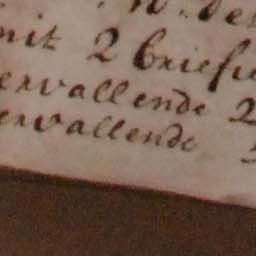 mit 2 brief
ervallende 2
ervallende